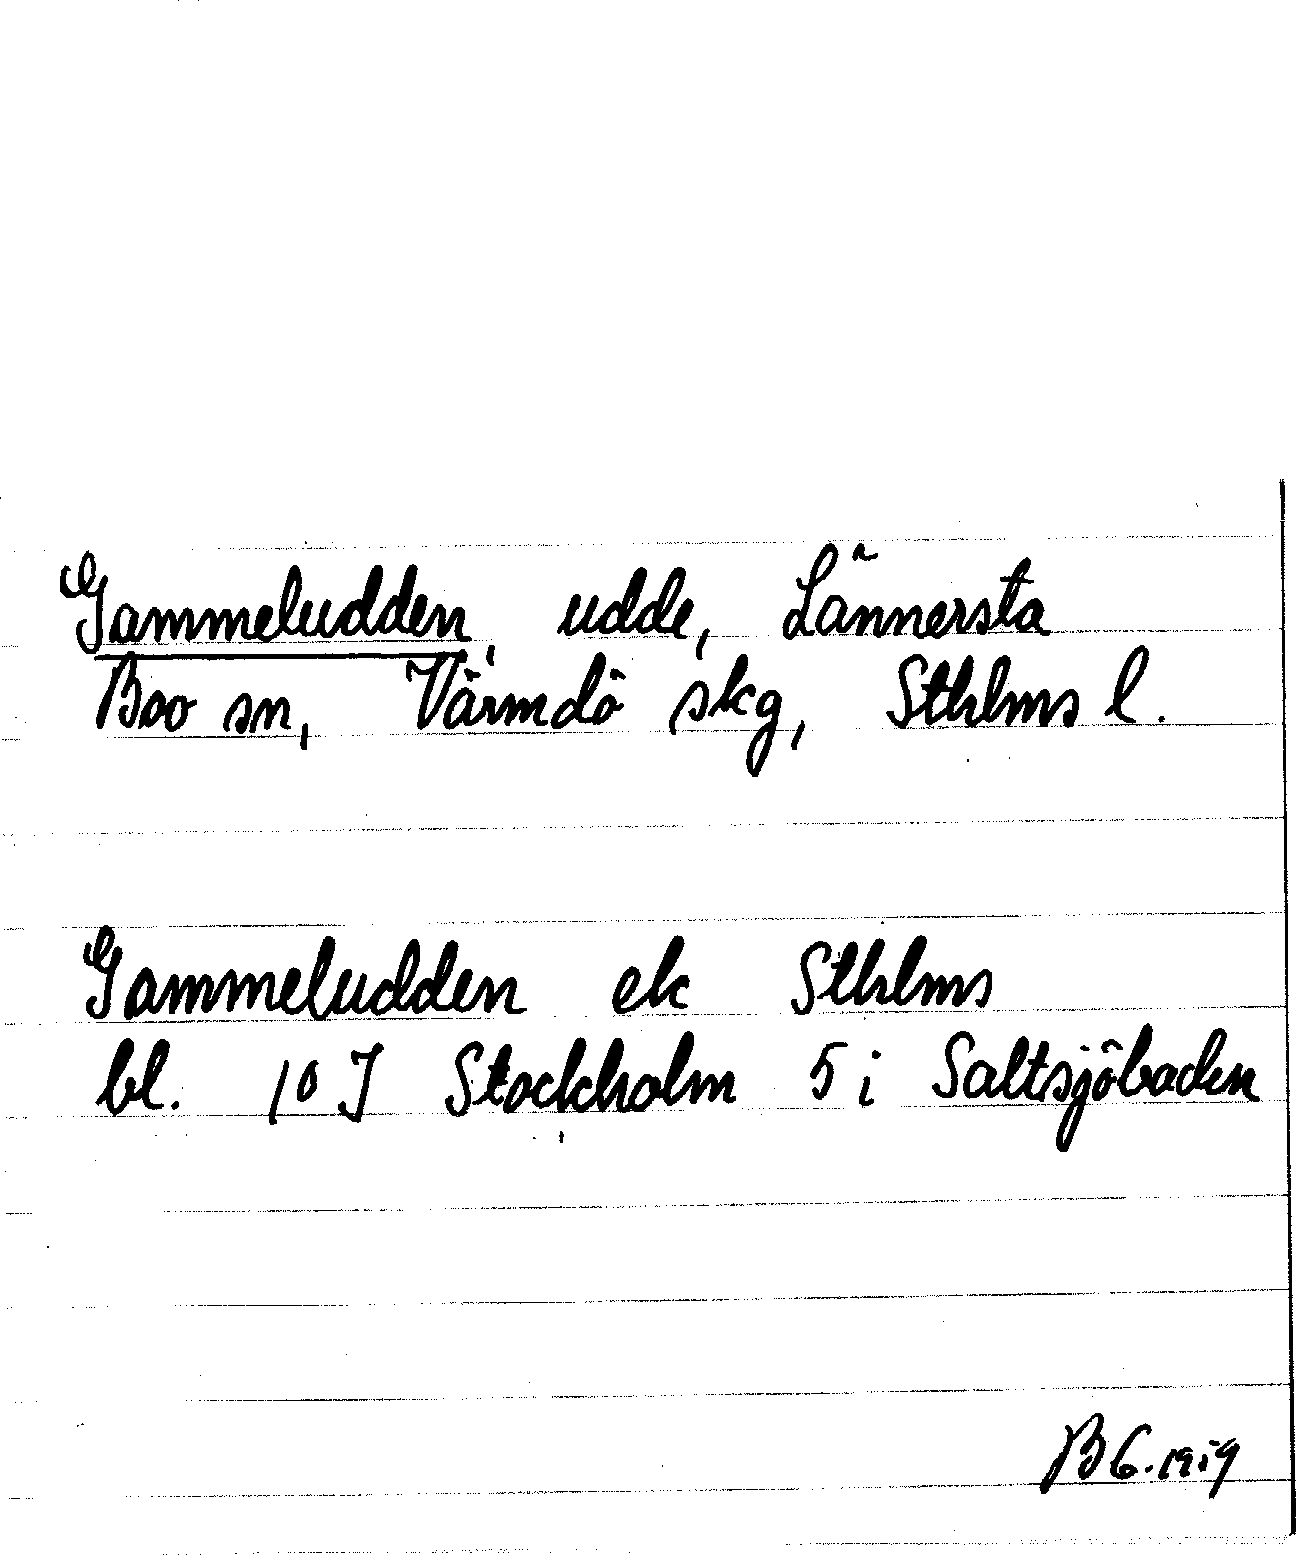 Gammeludden, udde, Lännersta
Boo sn, Värmdö skg, Sthlms l.
Gammeludden ek Sthlms
bl. 10 J Stockholm 5 i Saltsjöbaden